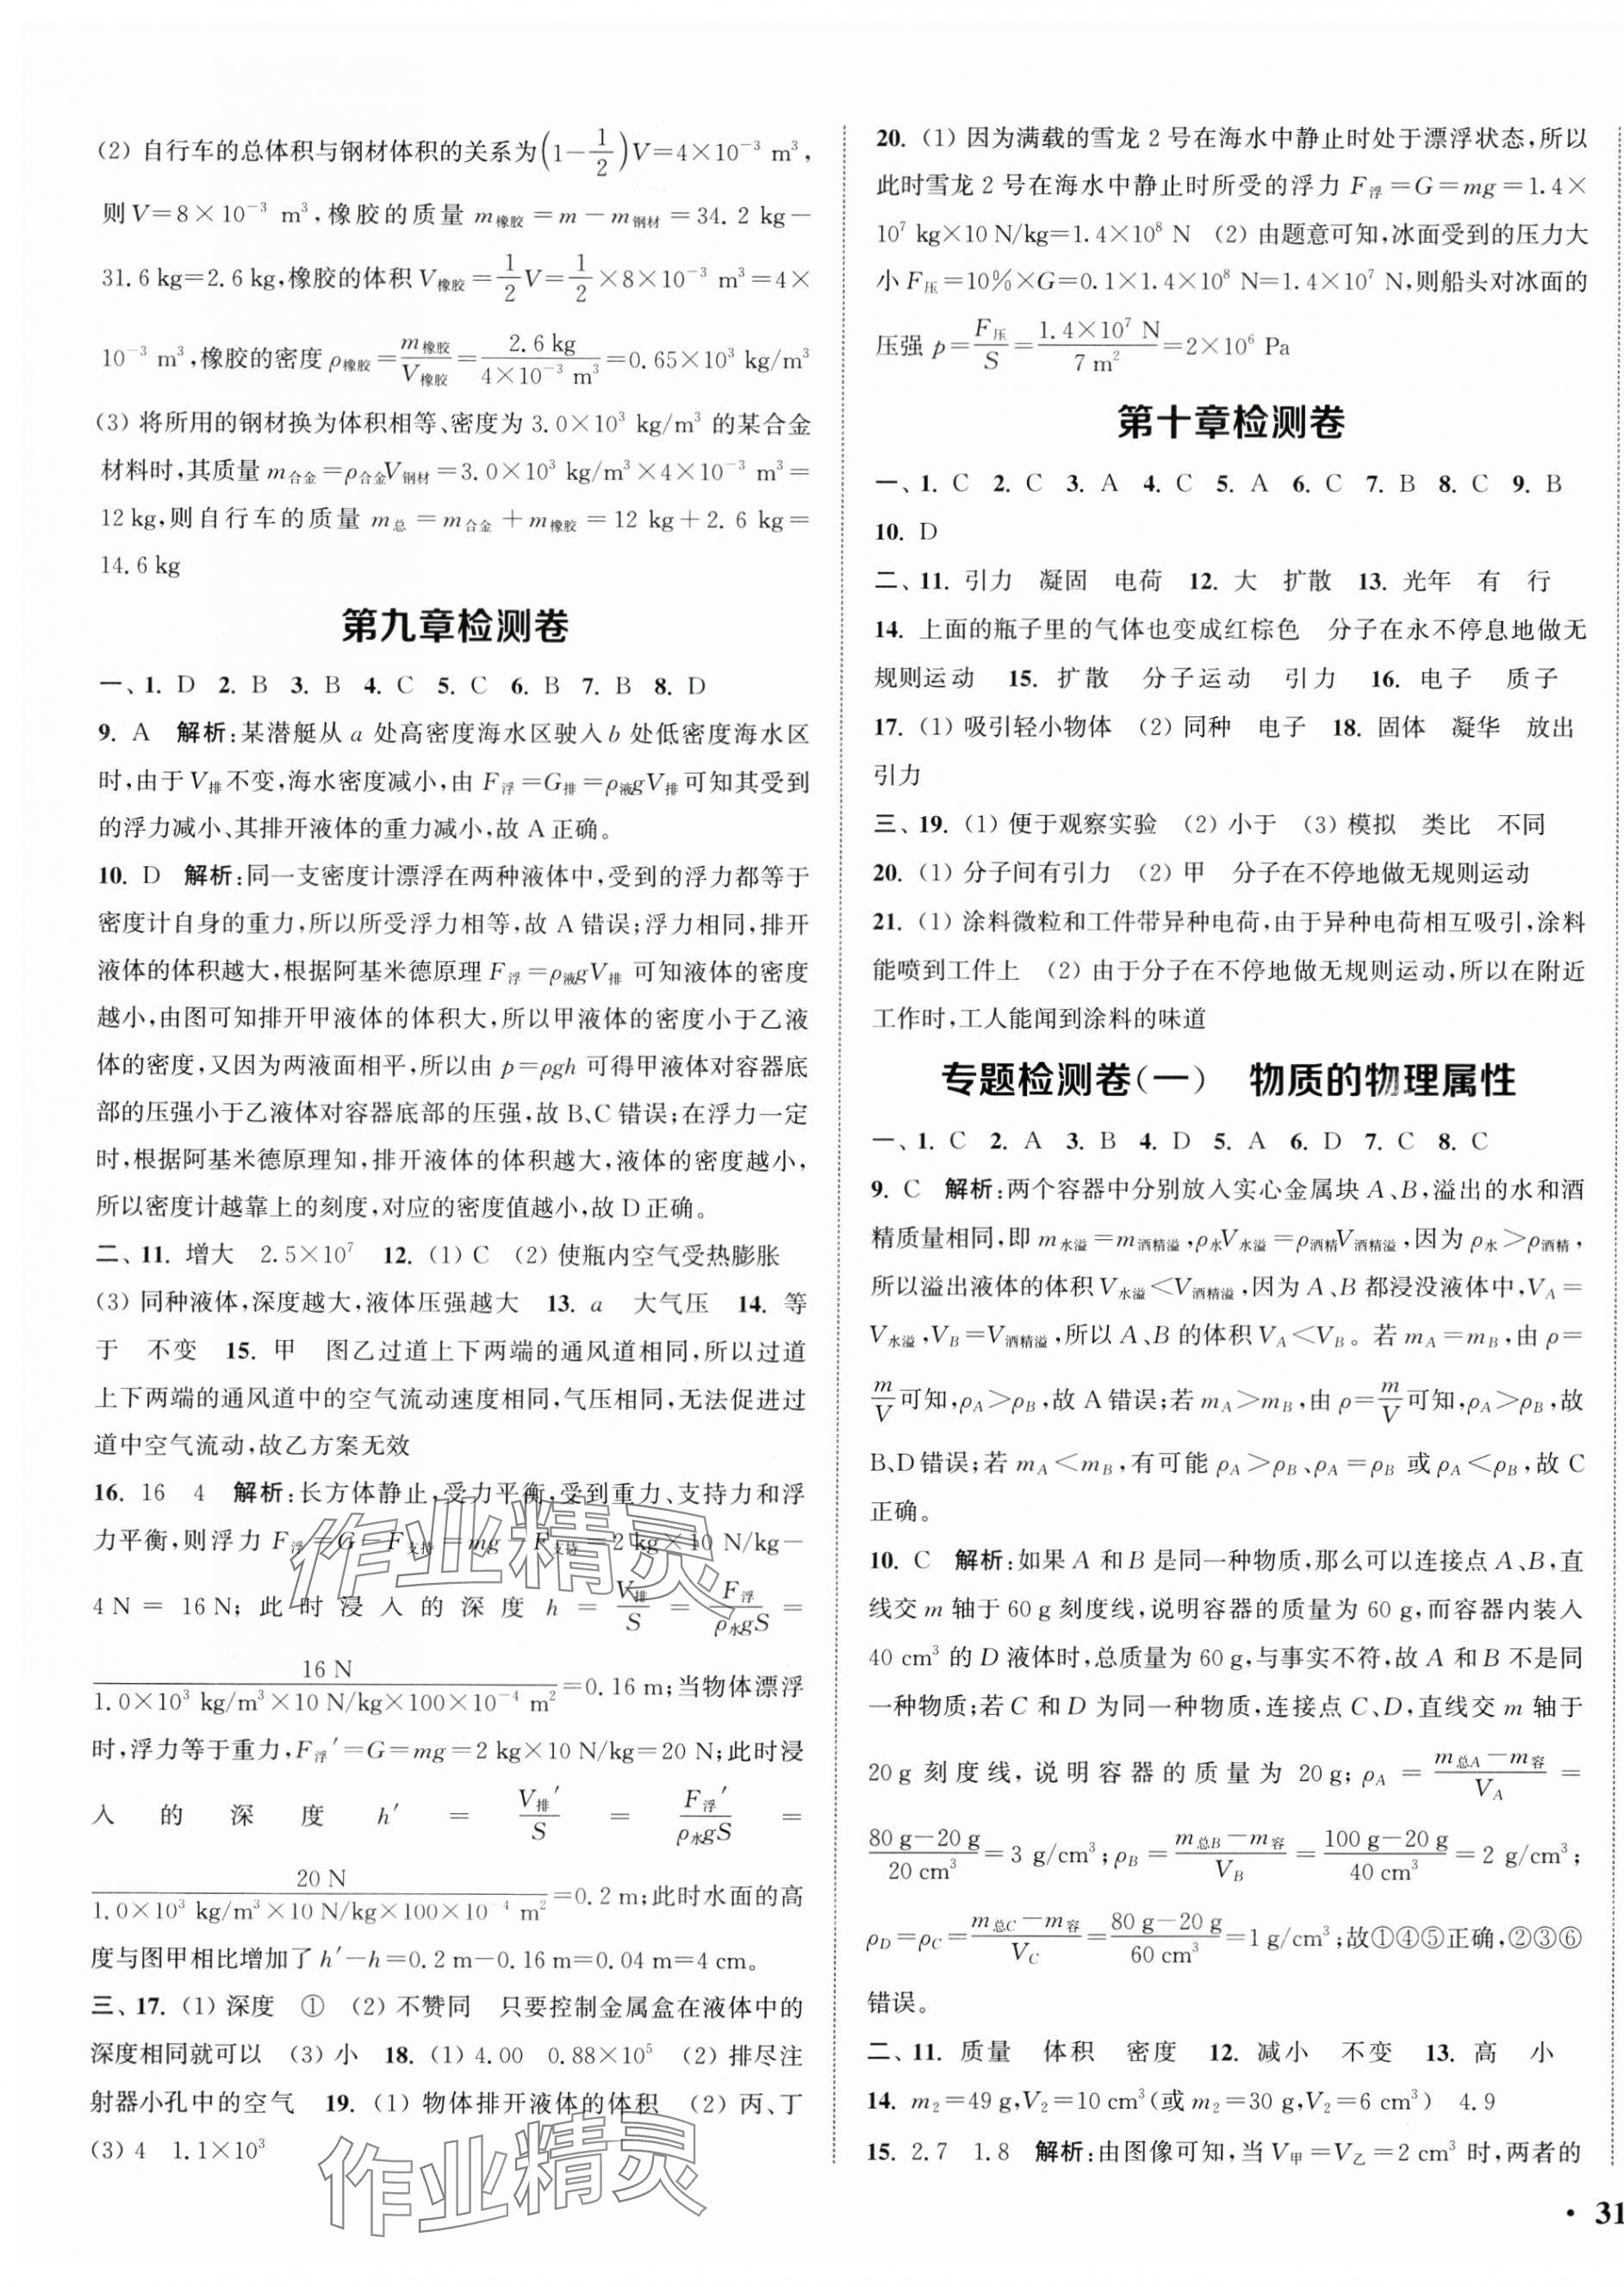 (2) 自行车的总体积与钢材体积的关系为(1−1/2)V=4×10⁻³ m³,
则V=8×10⁻³ m³,橡胶的质量 m橡胶=m−m钢材=34.2 kg−
31.6 kg=2.6 kg,橡胶的体积 V橡胶=1/2V=1/2×8×10⁻³ m³=4×
10⁻³ m³,橡胶的密度 ρ橡胶=m橡胶/V橡胶=2.6 kg/4×10⁻³ m³=0.65×10³ kg/m³
(3) 将所用的钢材换为体积相等、密度为 3.0×10³ kg/m³ 的某合金
材料时,其质量 m合金=ρ合金V钢材=3.0×10³ kg/m³×4×10⁻³ m³=
12 kg,则自行车的质量 m总=m合金+m橡胶=12 kg+2.6 kg=
14.6 kg
第九章检测卷
一、1. D 2. B 3. B 4. C 5. C 6. B 7. B 8. D
9. A 解析:某潜艇从 a 处高密度海水区驶入 b 处低密度海水区
时,由于 V排不变,海水密度减小,由 F浮=G排=ρ液gV排可知其受到
的浮力减小、其排开液体的重力减小,故 A 正确。
10. D 解析:同一支密度计漂浮在两种液体中,受到的浮力都等于
密度计自身的重力,所以所受浮力相等,故 A 错误;浮力相同,排开
液体的体积越大,根据阿基米德原理 F浮=ρ液gV排 可知液体的密度
越小,由图可知排开甲液体的体积大,所以甲液体的密度小于乙液
体的密度,又因为两液面相平,所以由 p=ρgh 可得甲液体对容器底
部的压强小于乙液体对容器底部的压强,故 B、C 错误;在浮力一定
时,根据阿基米德原理知,排开液体的体积越大,液体的密度越小,
所以密度计越靠上的刻度,对应的密度值越小,故 D 正确。
二、11. 增大 2.5×10⁷ 12. (1) C (2) 使瓶内空气受热膨胀
(3) 同种液体,深度越大,液体压强越大 13. a 大气压 14. 等
于 不变 15. 甲 图乙过道上下两端的通风道相同,所以过道
上下两端的通风道中的空气流动速度相同,气压相同,无法促进过
道中空气流动,故乙方案无效
16. 16 4 解析:长方体静止,受力平衡,受到重力、支持力和浮
力平衡,则浮力 F浮=G−F支持=mg−F支持=2 kg×10 N/kg−
4 N=16 N;此时浸入的深度 h=V排/S=F浮/ρ水gS=
16 N/1.0×10³ kg/m³×10 N/kg×100×10⁻⁴ m²=0.16 m;当物体漂浮
时,浮力等于重力,F浮′=G=mg=2 kg×10 N/kg=20 N;此时浸
入的深度 h′=V排′/S=F浮′/ρ水gS=
20 N/1.0×10³ kg/m³×10 N/kg×100×10⁻⁴ m²=0.2 m;此时水面的高
度与图甲相比增加了 h′−h=0.2 m−0.16 m=0.04 m=4 cm。
三、17. (1) 深度 ① (2) 不赞同 只要控制金属盒在液体中的
深度相同就可以 (3) 小 18. (1) 4.00 0.88×10⁵ (2) 排尽注
射器小孔中的空气 19. (1) 物体排开液体的体积 (2) 丙、丁
(3) 4 1.1×10³
20. (1) 因为满载的雪龙 2 号在海水中静止时处于漂浮状态,所以
此时雪龙 2 号在海水中静止时所受的浮力 F浮=G=mg=1.4×
10⁷ kg×10 N/kg=1.4×10⁸ N (2) 由题意可知,冰面受到的压力大
小 F压=10%×G=0.1×1.4×10⁸ N=1.4×10⁷ N,则船头对冰面的
压强 p=F压/S=1.4×10⁷ N/7 m²=2×10⁶ Pa
第十章检测卷
一、1. C 2. C 3. A 4. C 5. A 6. C 7. B 8. C 9. B
10. D
二、11. 引力 凝固 电荷 12. 大 扩散 13. 光年 有 行
14. 上面的瓶子里的气体也变成红棕色 分子在永不停息地做无
规则运动 15. 扩散 分子运动 引力 16. 电子 质子
17. (1) 吸引轻小物体 (2) 同种 电子 18. 固体 凝华 放出
引力
三、19. (1) 便于观察实验 (2) 小于 (3) 模拟 类比 不同
20. (1) 分子间有引力 (2) 甲 分子在不停地做无规则运动
21. (1) 涂料微粒和工件带异种电荷,由于异种电荷相互吸引,涂料
能喷到工件上 (2) 由于分子在不停地做无规则运动,所以在附近
工作时,工人能闻到涂料的味道
专题检测卷(一) 物质的物理属性
一、1. C 2. A 3. B 4. D 5. A 6. D 7. C 8. C
9. C 解析:两个容器中分别放入实心金属块 A、B,溢出的水和酒
精质量相同,即 m水溢=m酒精溢,ρ水V水溢=ρ酒精V酒精溢,因为 ρ水>ρ酒精,
所以溢出液体的体积 V水溢<V酒精溢,因为 A、B 都浸没液体中,VA=
V水溢,VB=V酒精溢,所以 A、B 的体积 VA<VB。若 mA=mB,由 ρ=
m/V可知,ρA>ρB,故 A 错误;若 mA>mB,由 ρ=m/V可知,ρA>ρB,故
B、D 错误;若 mA<mB,有可能 ρA>ρB、ρA=ρB 或 ρA<ρB,故 C
正确。
10. C 解析:如果 A 和 B 是同一种物质,那么可以连接点 A、B,直
线交 m 轴于 60 g 刻度线,说明容器的质量为 60 g,而容器内装入
40 cm³ 的 D 液体时,总质量为 60 g,与事实不符,故 A 和 B 不是同
一种物质;若 C 和 D 为同一种物质,连接点 C、D,直线交 m 轴于
20 g 刻度线,说明容器的质量为 20 g;ρA=m总A−m容/VA=
80 g−20 g/20 cm³=3 g/cm³;ρB=m总B−m容/VB=100 g−20 g/40 cm³=2 g/cm³;
ρD=ρC=m总C−m容/VC=80 g−20 g/60 cm³=1 g/cm³;故①④⑤正确,②③⑥
错误。
二、11. 质量 体积 密度 12. 减小 不变 13. 高 小
14. m₂=49 g,V₂=10 cm³(或 m₂=30 g,V₂=6 cm³) 4.9
15. 2.7 1.8 解析:由图像可知,当 V甲=V乙=2 cm³ 时,两者的
• 31
作业精灵
作业精灵